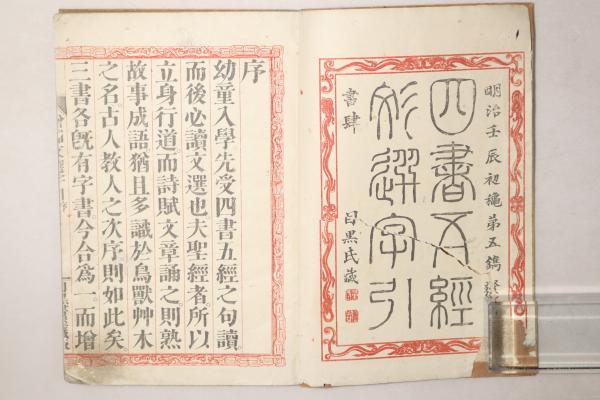 明治壬辰初龝第五鐫
四書五經
文選字引
書肆
目黑氏藏
序
幼童入學先受四書五經之句讀
而後必讀文選也夫聖經者所以
立身行道而詩賦文章誦之則熟
故事成語猶且多識於鳥獸艸木
之名古人敎人之次序則如此矣
三書各旣有字書今合爲一而增